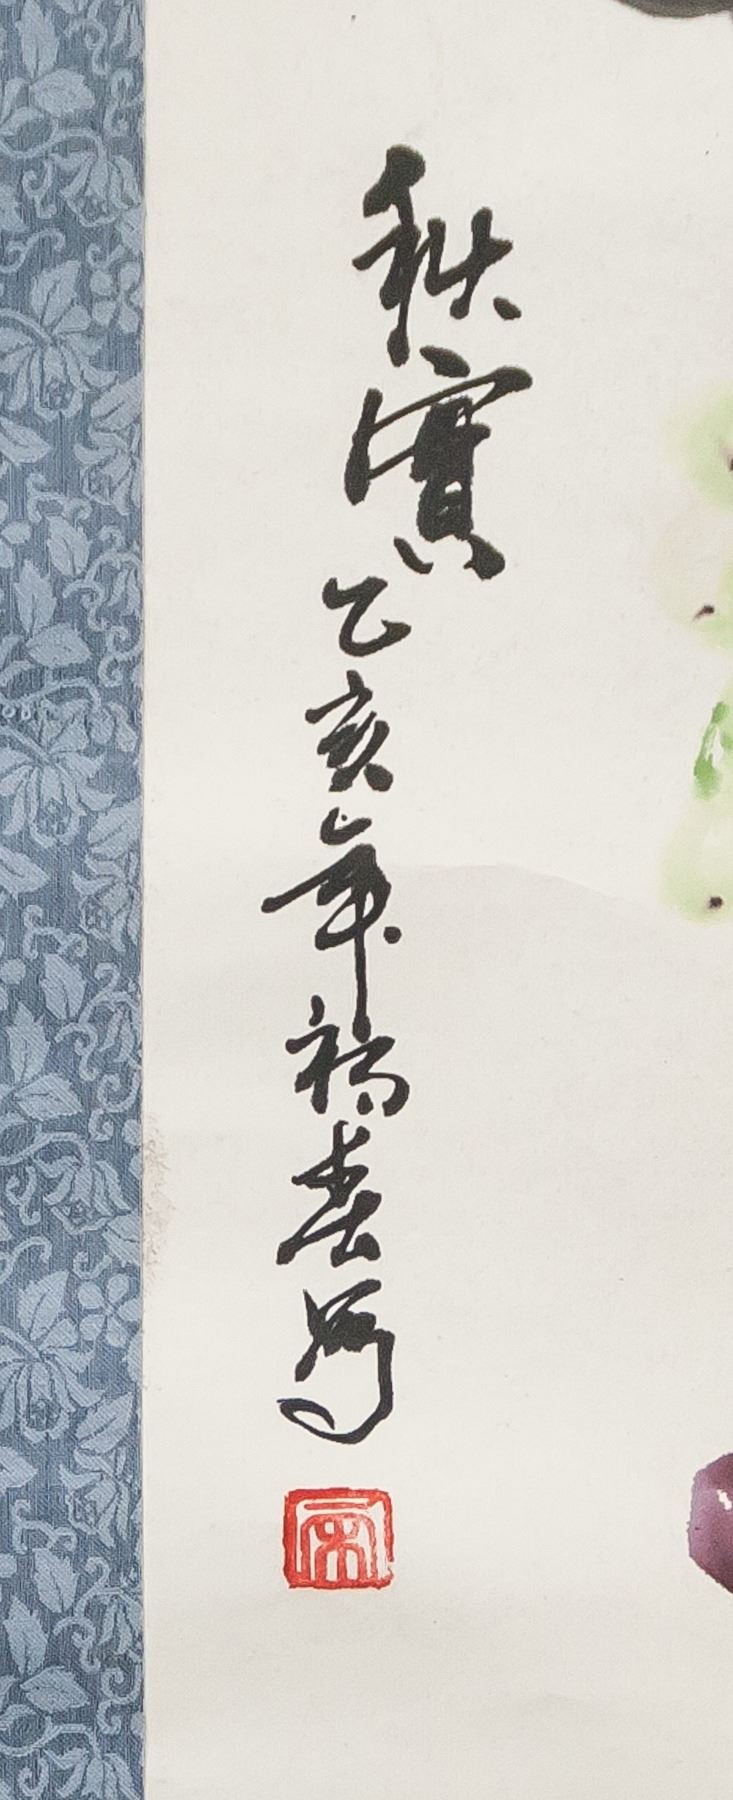 秋實乙亥年福春寫